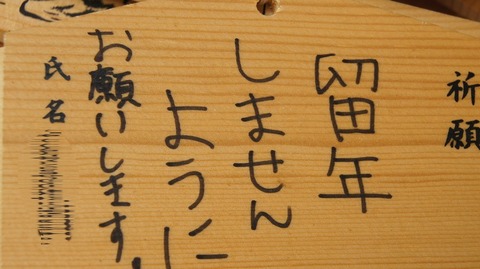 祈願
留年
しません
ように
お願いします。
氏名